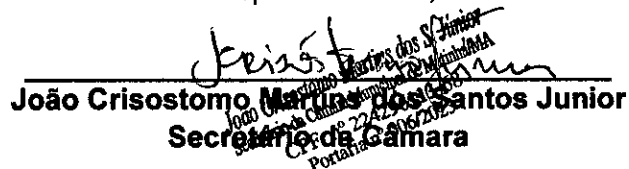 João Crisostomo Martins dos Santos Junior
Secretário da Câmara
João Crisostomo Martins dos S. Júnior
Secretário da Câmara Municipal de
Portaria nº 006/2023